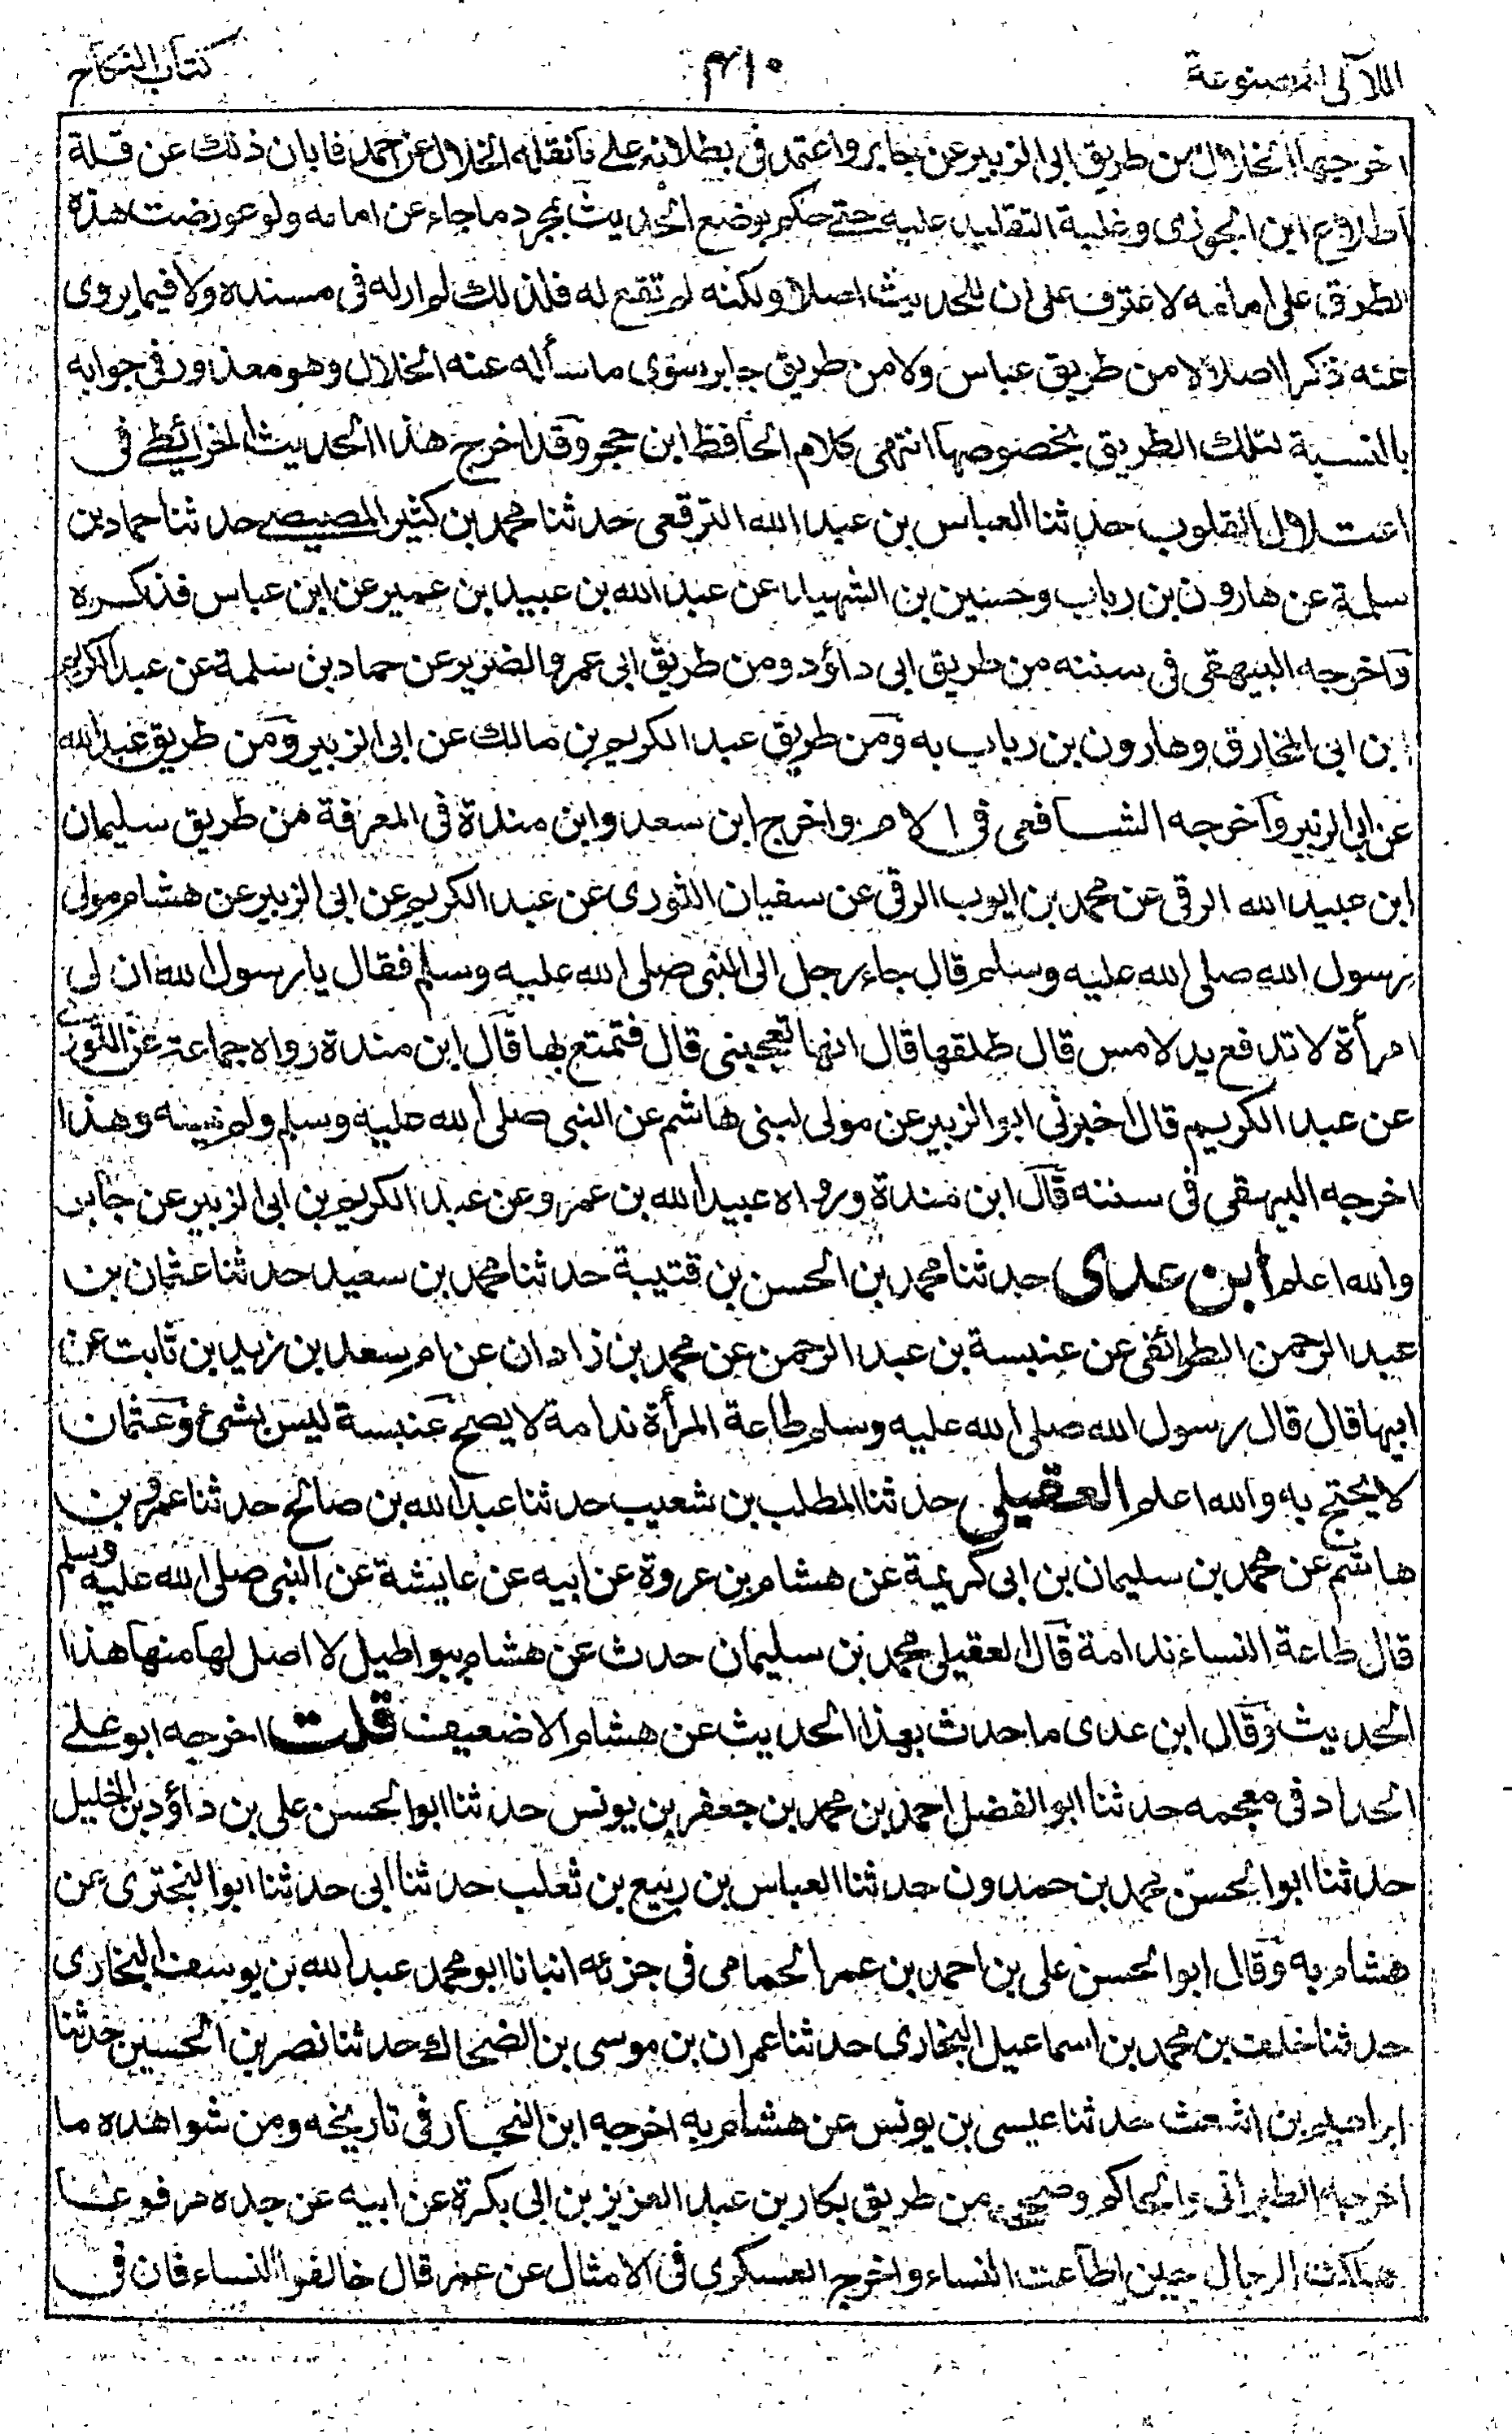 اللآلى المصنوعة
٤١٠
كتاب النكاح
اخرجها الخلال من طريق ابى الزبير عن جابر واعتمد فى بطلانه على ما نقله الخلال عن احمد فابان ذلك عن قلة
اطلاع ابن الجوزى وغلبة التقليد عليه حتى حكم بوضع الحديث بمجرد ما جاء عن امامه ولو عرضت هذه
الطرق على امامه لاعترف على ان للحديث اصلا ولكنه لم تقع له فلذلك لم ار له فى مسنده ولا فيما يروى
عنه ذكرا اصلا لا من طريق عباس ولا من طريق جابر سوى ما سأله عنه الخلال وهو معذور فى جوابه
بالنسبة لتلك الطريق بخصوصها انتهى كلام الحافظ ابن حجر وقد اخرج هذا الحديث الخرائطى فى
اعتلال القلوب حدثنا العباس بن عبد الله الترقفى حدثنا محمد بن كثير المصيصى حدثنا حماد بن
سلمة عن هارون بن رياب وحسين بن الشهيد عن عبد الله بن عبيد بن عمير عن ابن عباس فذكره
واخرجه البيهقى فى سننه من طريق ابى داؤد ومن طريق ابى عمرو الضرير عن حماد بن سلمة عن عبد الكريم
بن ابى المخارق وهارون بن رياب به ومن طريق عبد الكريم بن مالك عن ابى الزبير ومن طريق عبد الله
عن ابى الزبير وآخرجه الشافعى فى الام واخرج ابن سعد وابن مندة فى المعرفة من طريق سليمان
ابن عبيد الله الرقى عن محمد بن ايوب الرقى عن سفيان الثورى عن عبد الكريم عن ابى الزبير عن هشام مولى
رسول الله صلى الله عليه وسلم قال جاء رجل الى النبى صلى الله عليه وسلم فقال يا رسول الله ان لى
امرأة لا تدفع يد لامس قال طلقها قال انها تعجبنى قال فتمتع بها قال ابن مندة رواه جماعة عن الثورى
عن عبد الكريم قال اخبرنى ابو الزبير عن مولى لبنى هاشم عن النبى صلى الله عليه وسلم ولم يسمه وهذا
اخرجه البيهقى فى سننه قال ابن مندة ورواه عبيد الله بن عمرو عن عبد الكريم بن ابى الزبير عن جابر
والله اعلم ابن عدى حدثنا محمد بن الحسن بن قتيبة حدثنا محمد بن سعيد حدثنا عثمان بن
عبد الرحمن الطرائفى عن عنبسة بن عبد الرحمن عن محمد بن زاذان عن ام سعد بن زيد بن ثابت عن
ابيها قال قال رسول الله صلى الله عليه وسلم طاعة المرأة ندامة لا يصح عنبسة ليس بشئ وعثمان
لا يحتج به والله اعلم العقيلى حدثنا المطلب بن شعيب حدثنا عبد الله بن صالح حدثنا عمرو بن
هاشم عن محمد بن سليمان بن ابى كريمة عن هشام بن عروة عن ابيه عن عايشة عن النبى صلى الله عليه وسلم
قال طاعة النساء ندامة قال العقيلى محمد بن سليمان حدث عن هشام ببواطيل لا اصل لها منها هذا
الحديث وقال ابن عدى ما حدث بهذا الحديث عن هشام الا ضعيف قلت اخرجه ابو على
الحداد فى معجمه حدثنا ابو الفضل احمد بن محمد بن جعفر بن يونس حدثنا ابو الحسن على بن داؤد بن الخليل
حدثنا ابو الحسن محمد بن حمدون حدثنا العباس بن ربيع بن ثعلب حدثنا ابى حدثنا ابو البخترى عن
هشام به وقال ابو الحسن على بن احمد بن عمر الحمامى فى جزئه انبانا ابو محمد عبد الله بن يوسف البخارى
حدثنا خلف بن محمد بن اسماعيل البخارى حدثنا عمران بن موسى بن الضحاك حدثنا نصر بن الحسين حدثنا
ابراهيم بن اشعث حدثنا عيسى بن يونس عن هشام به اخرجه ابن النجار فى تاريخه ومن شواهده ما
اخرجه الطبرانى والحاكم وصححه من طريق بكار بن عبد العزيز بن ابى بكرة عن ابيه عن جده مرفوعا
هلكت الرجال حين اطاعت النساء واخرج العسكرى فى الامثال عن عمر قال خالفوا النساء فان فى